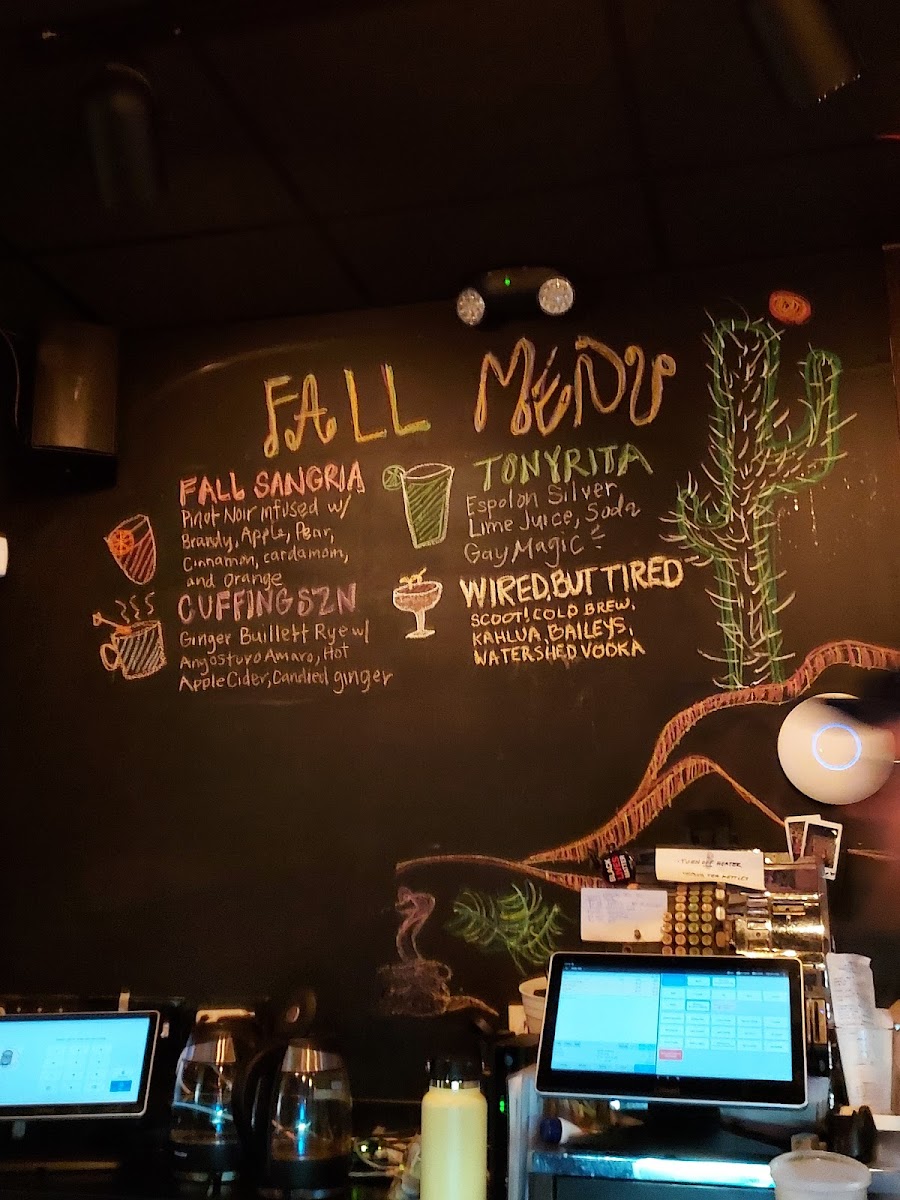 FALL MENU
FALL SANGRIA
Pinot Noir infused w/
Brandy, Apple, Pear,
Cinnamon, cardamom,
and orange
CUFFING SZN
Ginger Bullett Rye w/
Angosturo Amaro, Hot
Apple Cider, Candied ginger
TONYRITA
Espolon Silver
Lime Juice, Soda
Gay Magic
WIRED, BUT TIRED
SCOOT! COLD BREW,
KAHLUA, BAILEYS,
WATERSHED VODKA
TURN OFF HEATER